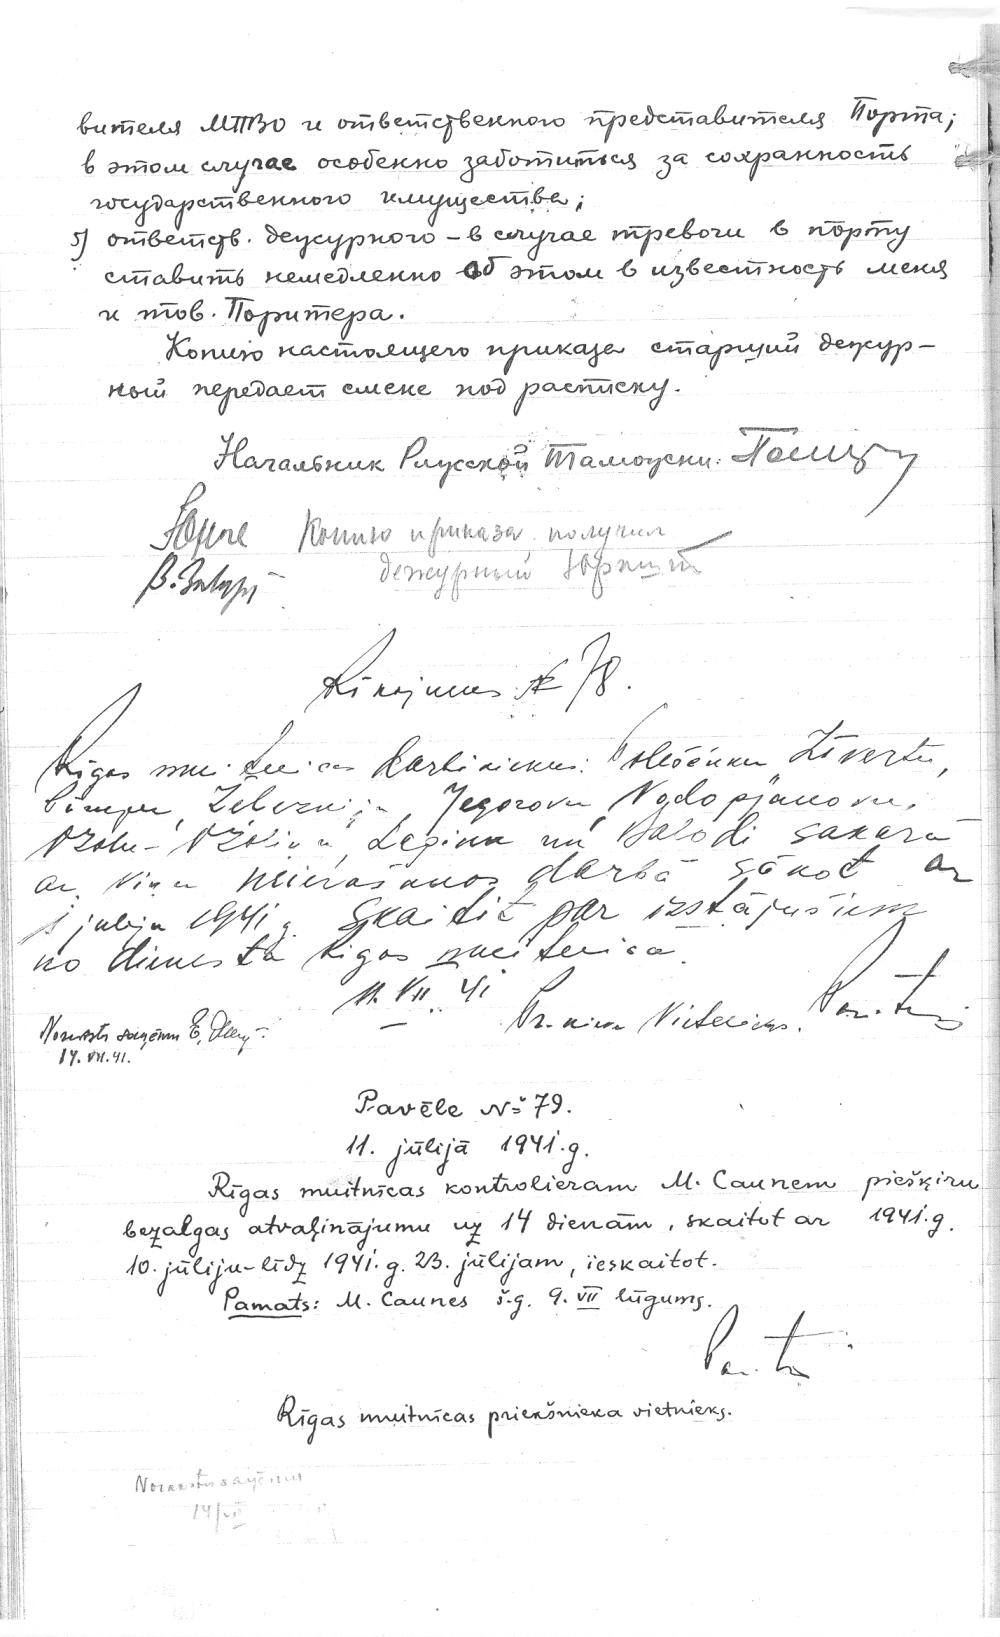 вителя МПВО и ответственного представителя Порта;
в этом случае особенно заботиться за сохранность
государственного имущества;
5) ответств. дежурного – в случае тревоги в порту
ставить немедленно об этом в известность меня
и тов. Поритера.
Копию настоящего приказа старший дежур-
ный передает смене под расписку.
Начальник Рижской Таможни:
Копию приказа получил
дежурный
Rīkojums № 78.
Rīgas muitnīcas darbiniekus: Zīvertu,
Jegorovu,
un Balodi sakarā
ar viņu neierašanos darbā sākot ar
1 jūliju 1941 g. skaitīt par izstājušiem
no dienesta Rīgas muitnīcā.
11. VII. 41
Pr-nieka Vietnieks.
Norakstu saņēmu E.
14. VII. 41.
Pavēle № 79.
11. jūlijā 1941.g.
Rīgas muitnīcas kontrolieram M. Caunem piešķiru
bezalgas atvaļinājumu uz 14 dienām, skaitot ar 1941.g.
10. jūliju–līdz 1941.g. 23. jūlijam, ieskaitot.
Pamats: M. Caunes š.g. 9. VII lūgums.
Rīgas muitnīcas priekšnieka vietnieks.
Norakstu saņēmu
14/VII